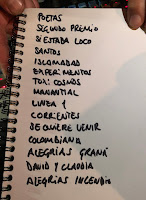 POETAS
SEGUNDO PREMIO
SI ESTABA LOCO
SANTOS
ISLAMABAD
EXPERIMENTOS
TOXICOSMOS
MANANTIAL
LINEA 1
CORRIENTES
DE QUERER VENIR
COLOMBIANA
ALEGRÍAS GRANÁ
DAVID Y CLAUDIA
ALEGRÍAS INCENDIO